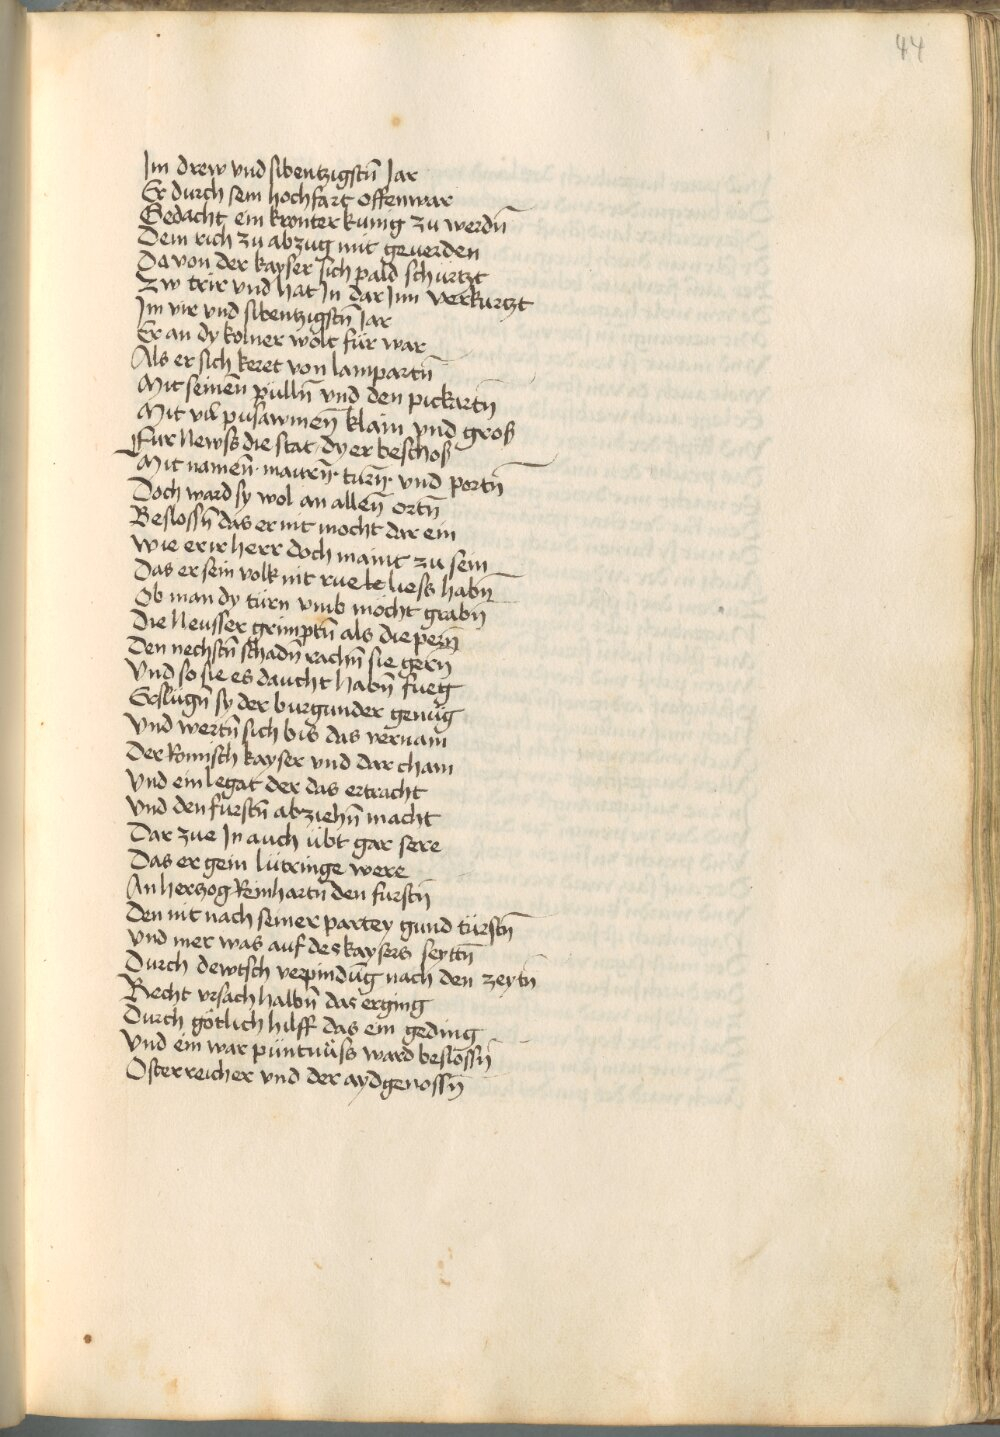 44
Im drew vnd sibentzigstn̄ Jar
Er durch sein hochfart offenwar
Gedacht ein kronter kunig zu werdn̄
Dem rich zu abzug mit geuerden
Da von der kayser sich pald schurtzt
Zw trir vnd hat In dar Inn verkurtzt
Im vir vnd sibentzigstn̄ Jar
Er an dy kolner wolt für war
Als er sich keret von lampartn̄
Mit seinen pülln̄ vnd den pickartn̄
Mit vil pusawmen̄ klain vnd groß
Fur Newss die stat dy er beschoß
Mit namen̄ mauren̄ turn̄ vnd portn̄
Doch ward sy wol an allen̄ ortn̄
Beslossn̄ das er nit mocht dar ein
Wie er ir herr doch maint zu sein
Das er sein volk nit rue liess habn̄
Ob man dy türn vmb möcht grabn̄
Die Neusser grimptn̄ als die pern̄
Den nechstn̄ schadn̄ rachn̄ sie gern̄
Vnd so sie es daucht habn̄ fueg
Erslugn̄ sy der burgunder genug
Vnd wertn̄ sich bis das vernam
Der Romisch kayser vnd dar cham
Vnd ein legat der das ertracht
Vnd den furstn̄ abziehn̄ macht
Dar zue In auch übt gar sere
Das er gein lütringe were
An hertzog Reinhartn den furstn̄
Den nit nach seiner partey gund türstn̄
Vnd mer was auf des kaysers seyttn̄
Durch dewtsch verpindūg nach den zeytn̄
Recht vrsach halbn̄ das erging
Durch götlich hilff das ein geding
Vnd ein war püntnüss ward beslossn̄
Osterreicher vnd der aydgenossn̄